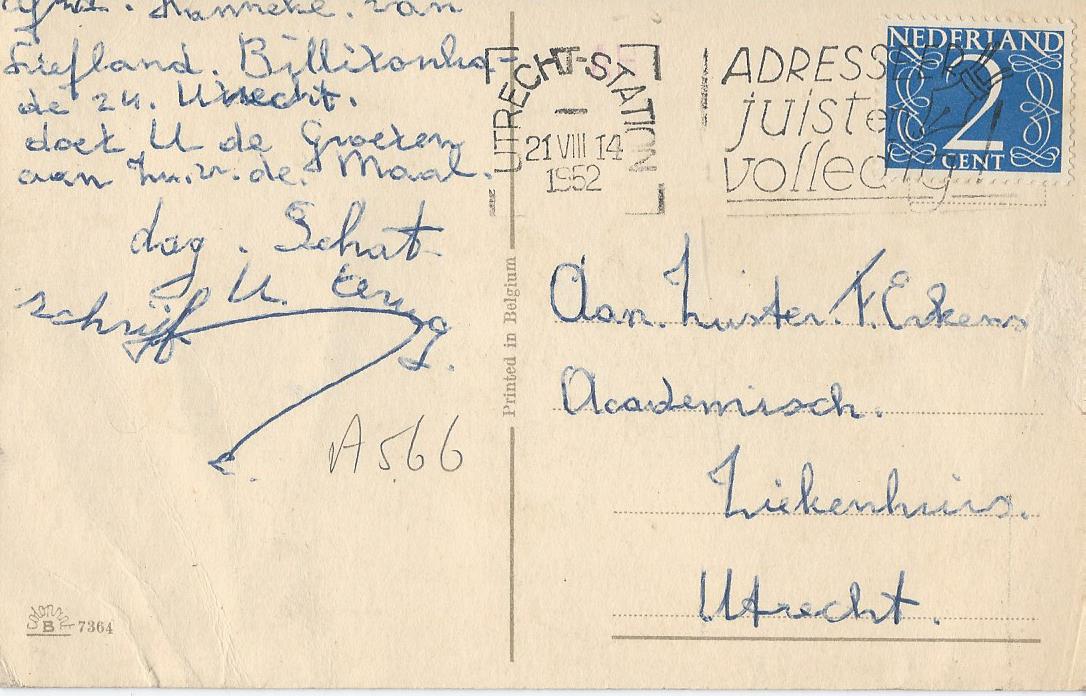 Hanneke. van
Liefland. Billitonka-
de 24. Utrecht.
doet U de Groeten
aan Zu. v. de. Maal.
dag. Schat
schrijf U
A566
Colorprint
B 7364
Printed in Belgium
UTRECHT-STATION
21 VIII 14
1952
ADRESSEER
juist en
volledig
NEDERLAND
2
CENT
Aan. Zuster. F. Erkens
Academisch.
Ziekenhuis.
Utrecht.